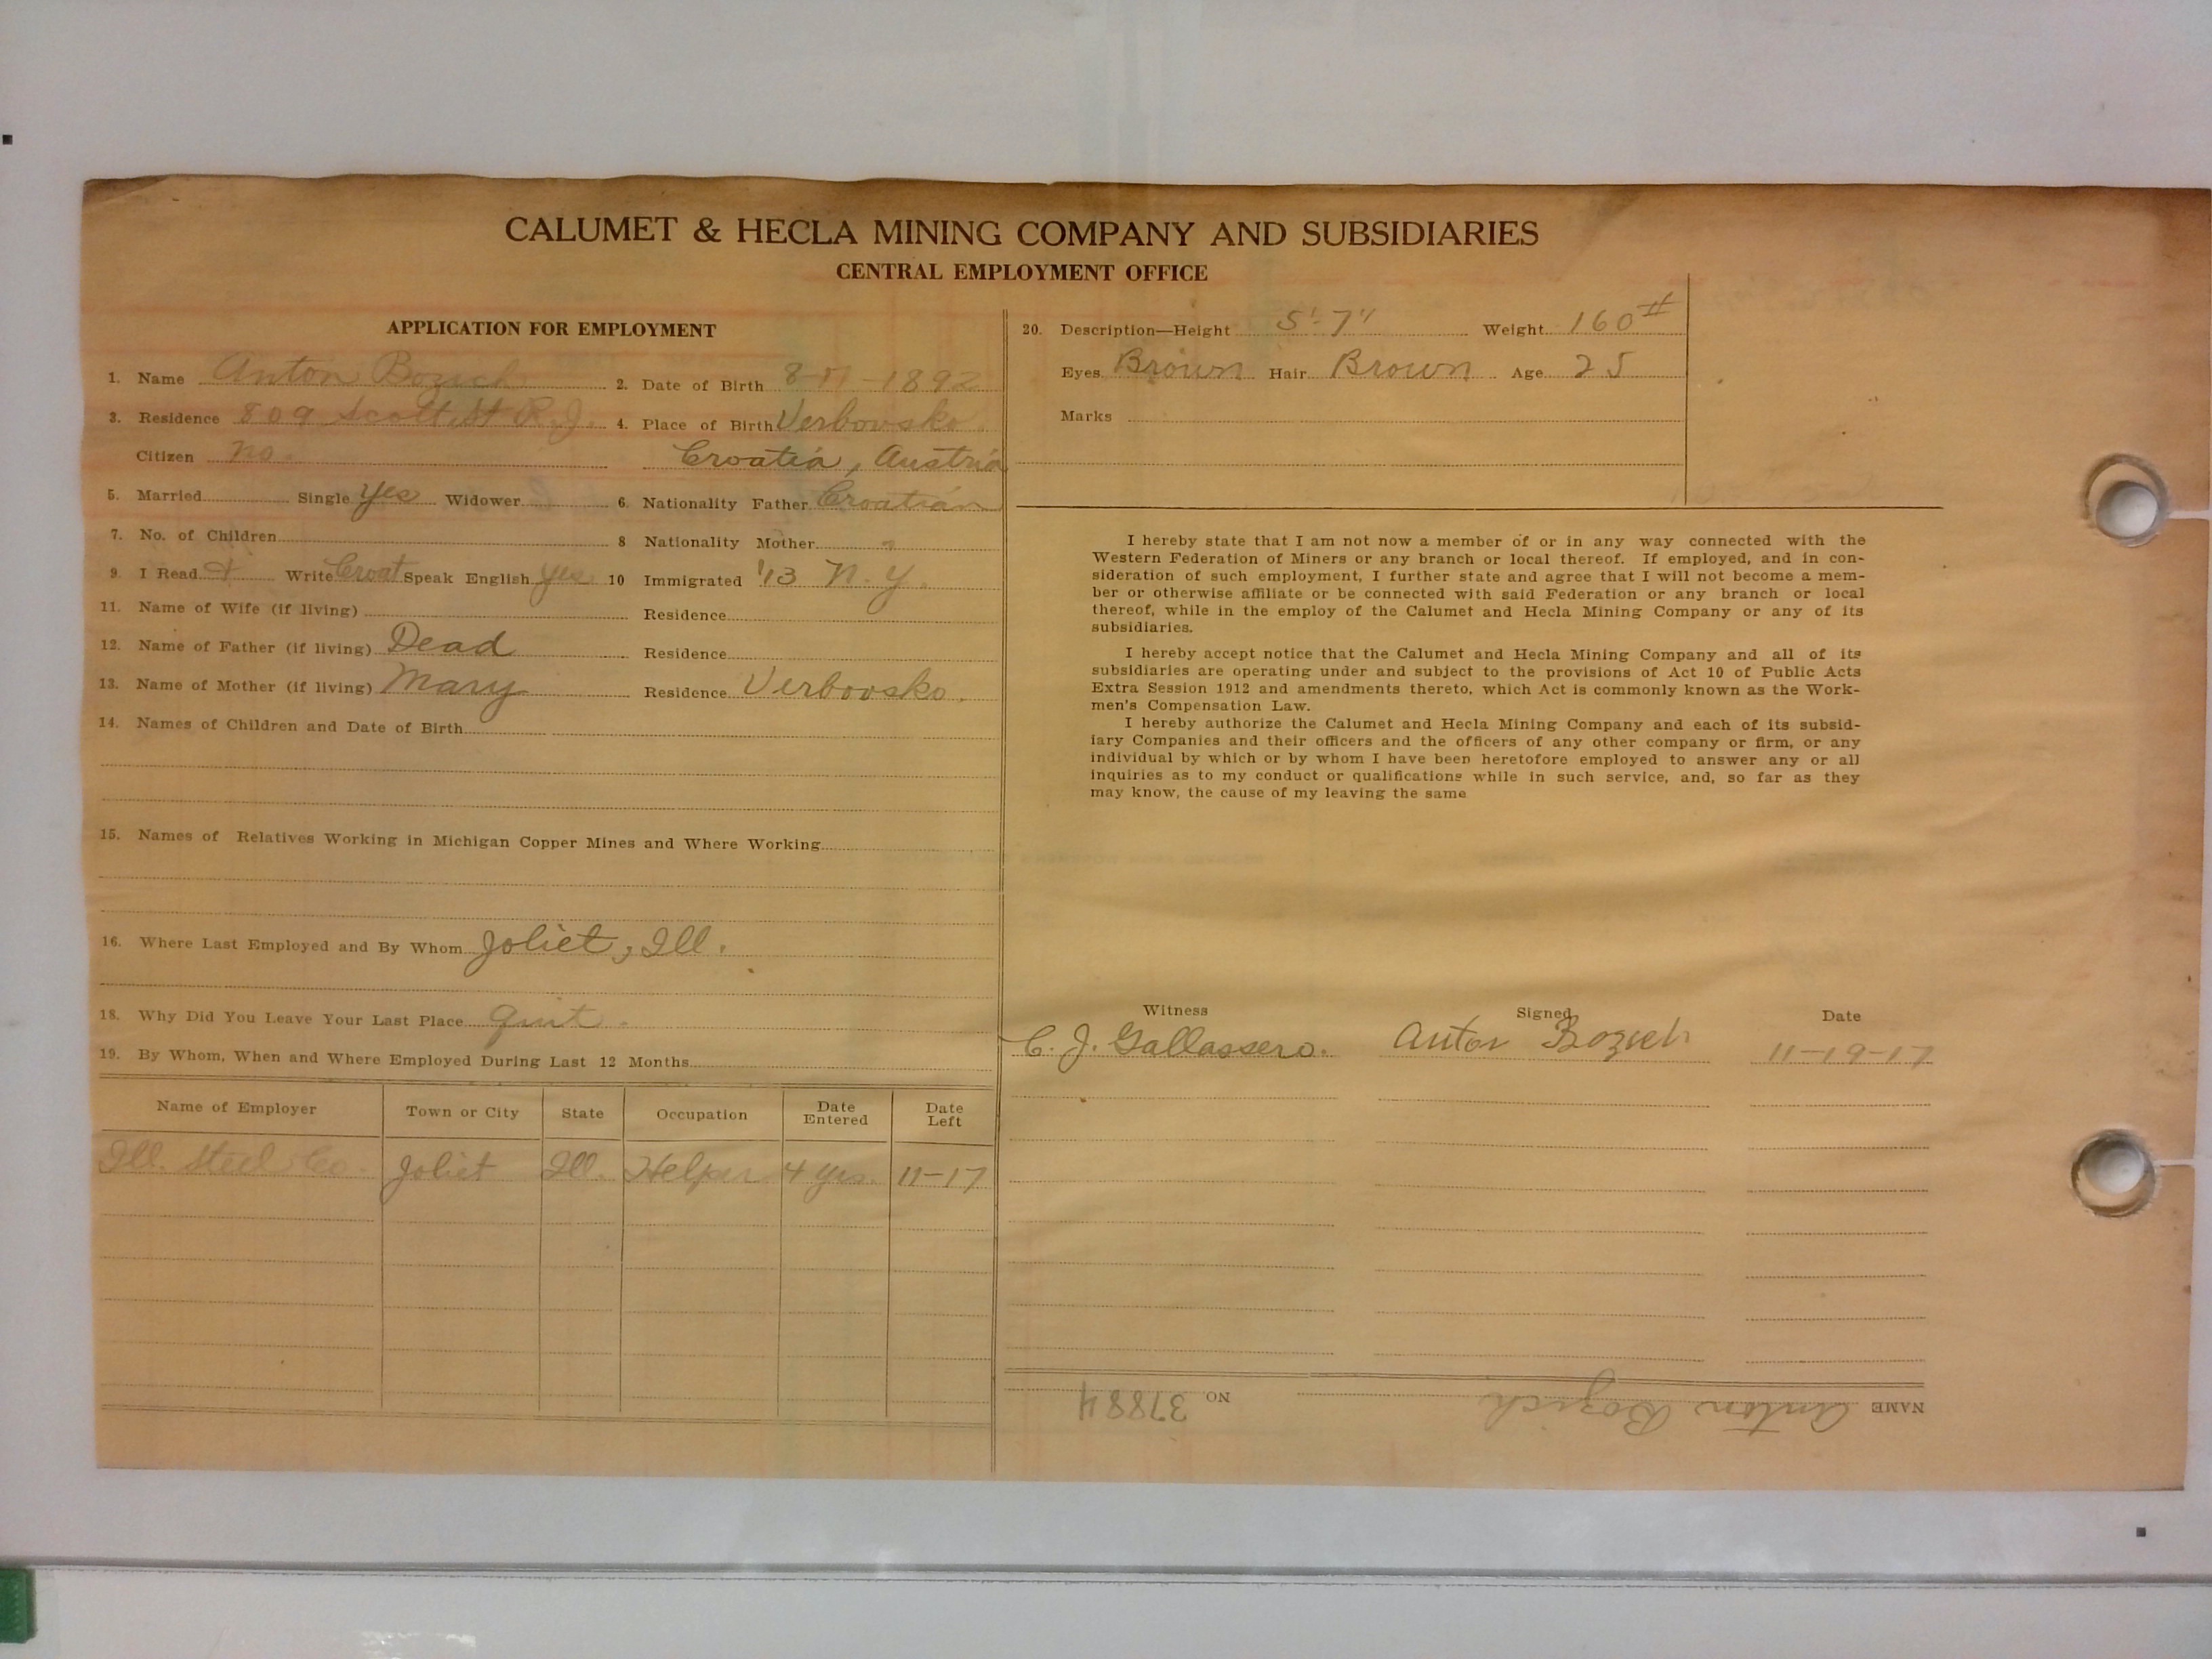 CALUMET & HECLA MINING COMPANY AND SUBSIDIARIES
CENTRAL EMPLOYMENT OFFICE
APPLICATION FOR EMPLOYMENT
1. Name Anton Bozich 2. Date of Birth 8- -1892
3. Residence 809 Scott St R.J. 4. Place of Birth Verbovsko.
Citizen no. Croatia, Austria
5. Married Single yes Widower 6. Nationality Father Croatian
7. No. of Children 8 Nationality Mother "
9. I Read & Write Croat Speak English yes 10 Immigrated '13 N.Y.
11. Name of Wife (if living) Residence
12. Name of Father (if living) Dead Residence
13. Name of Mother (if living) Mary Residence Verbovsko.
14. Names of Children and Date of Birth
15. Names of Relatives Working in Michigan Copper Mines and Where Working
16. Where Last Employed and By Whom Joliet, Ill.
18. Why Did You Leave Your Last Place Quit.
19. By Whom, When and Where Employed During Last 12 Months
Name of Employer Town or City State Occupation Date Entered Date Left
Ill. Steel Co. Joliet Ill. Helper 4 yrs. 11-17
20. Description—Height 5'-7" Weight 160#
Eyes Brown Hair Brown Age 25
Marks
I hereby state that I am not now a member of or in any way connected with the
Western Federation of Miners or any branch or local thereof. If employed, and in con-
sideration of such employment, I further state and agree that I will not become a mem-
ber or otherwise affiliate or be connected with said Federation or any branch or local
thereof, while in the employ of the Calumet and Hecla Mining Company or any of its
subsidiaries.
I hereby accept notice that the Calumet and Hecla Mining Company and all of its
subsidiaries are operating under and subject to the provisions of Act 10 of Public Acts
Extra Session 1912 and amendments thereto, which Act is commonly known as the Work-
men's Compensation Law.
I hereby authorize the Calumet and Hecla Mining Company and each of its subsid-
iary Companies and their officers and the officers of any other company or firm, or any
individual by which or by whom I have been heretofore employed to answer any or all
inquiries as to my conduct or qualifications while in such service, and, so far as they
may know, the cause of my leaving the same
Witness Signed Date
C. J. Gallassero. Anton Bozich 11-19-17
NAME Anton Bozich NO 37884